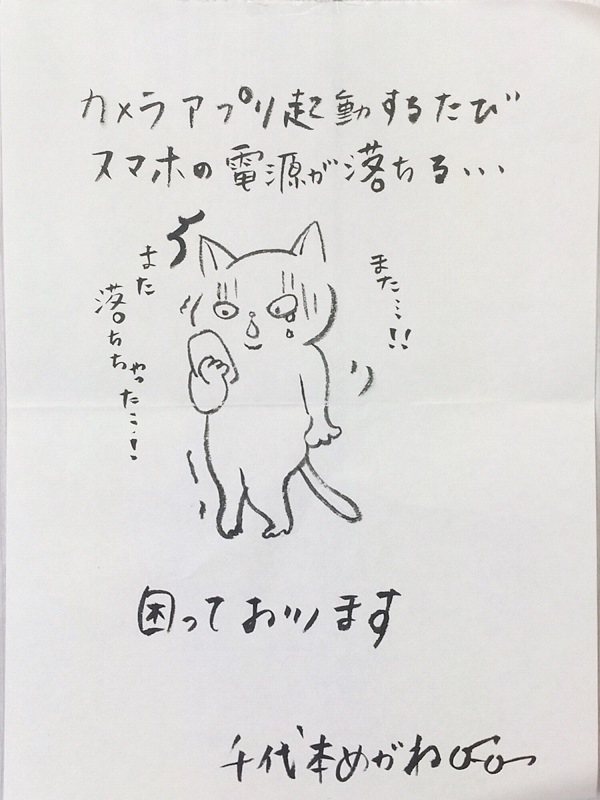 カメラアプリ起動するたび
スマホの電源が落ちる...
また...!!
また
落ちちゃった...!
困っております
千代本めがね